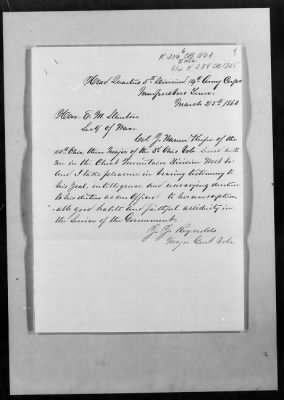 Head Quarters 5th Division 14th Army Corps
Murfreesboro Tenn.
March 25th 1863
Hon. E. M. Stanton
Secty of War.
Col J. Warren Keifer of the
110th Ohio, then Major of the 3d Ohio Vols served with
me in the Cheat Mountain Division West Va.
And I take pleasure in bearing testimony to
his zeal, intelligence and unvarying devotion
to his duties as an Officer to his unexception-
able good habits and faithful assiduity in
the Service of the Government.
J. J. Reynolds
Major Genl Vols.